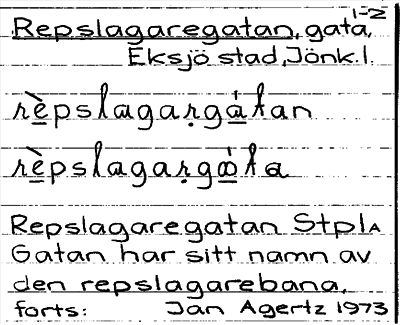 1-2
Repslagaregatan, gata,
Eksjö stad, Jönk. l.
rè̠pslagaṛgá̠tan
rè̠pslagaṛgὼ̠ta
Repslagaregatan StplA
Gatan har sitt namn av
den repslagarebana.
forts: Jan Agertz 1973